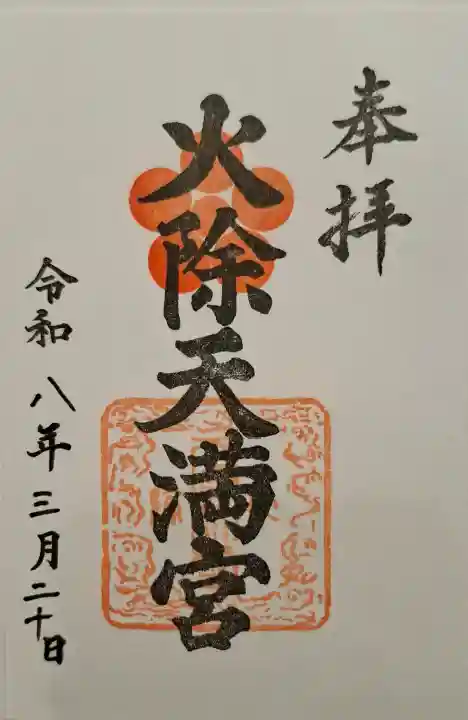 奉拝
火除天満宮
令和八年三月二十日